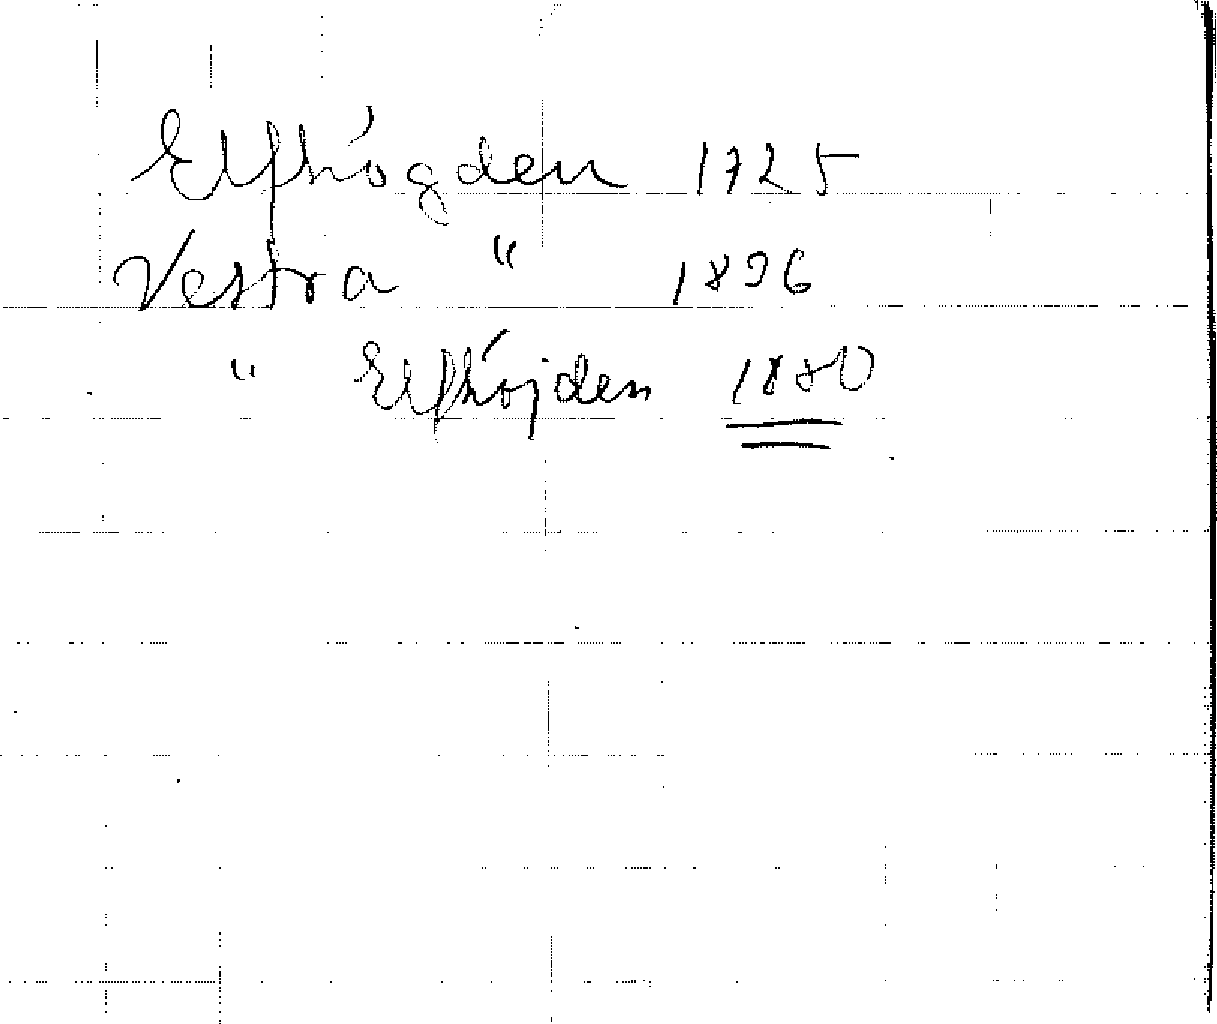 Elfhögden 1725
Vestra " 1896
" Elfhöjden 1880